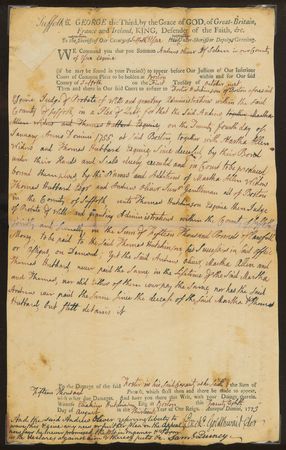 Suffolk ss. GEORGE the Third, by the Grace of GOD, of Great-Britain,
France and Ireland, KING, Defender of the Faith, &c.
To the Sheriff of Our County of Suffolk
WE Command you that you Summon Andrew Oliver of Salem in our County
of Essex Esquire
(if he may be found in your Precinct) to appear before Our Justices of our Inferiour
Court of Common Pleas to be holden at Boston within and for Our said
County of Suffolk on the first Tuesday of October next
Then and there in Our said Court to answer to Foster Hutchinson of Boston aforesaid
Esquire Judge of Probate of Wills and granting Administrations within the said
County of Suffolk, in a Plea of Debt for that the said Andrew
Allen Widow and Thomas Hubbard Esquire
January Anno Domini 1755 at said Boston together with Martha Allen
Widow and Thomas Hubbard Esquire since deceased by their Bond
under their Hands and Seals duly executed and in Court to be produced
bound themselves by the Names and Additions of Martha Allen Widow
Thomas Hubbard Esqr and Andrew Oliver Gentleman all of Boston
in the County of Suffolk unto Thomas Hutchinson Esquire then Judge
of Probate of Wills and granting Administrations within the County of
in the Sum of Fifteen Thousand Pounds of lawfull
Money to be paid to the said Thomas Hutchinson his Successors in said office
or Assigns, on Demand; Yet the said Andrew Oliver, Martha Allen and
Thomas Hubbard never paid the same in the Lifetime of the said Martha
and Thomas, nor did either of them ever pay the same nor has the said
Andrew ever paid the same since the decease of the said Martha & Thomas
Hubbard but still detains it
To the Damage of the said Foster in his said
the Sum of
Fifteen thousand Pounds, which shall then and there be made to appear,
with other due Damages. And have you there this Writ, with your Doings therein.
Witness Hutchinson Esq; at Boston this
Day of August In the Thirteenth Year of Our Reign, Annoque Domini, 1773
Ezekl Goldthwait Cler
And the said Andrew Oliver
as he declares against him & thereof puts &c. Saml Quincy